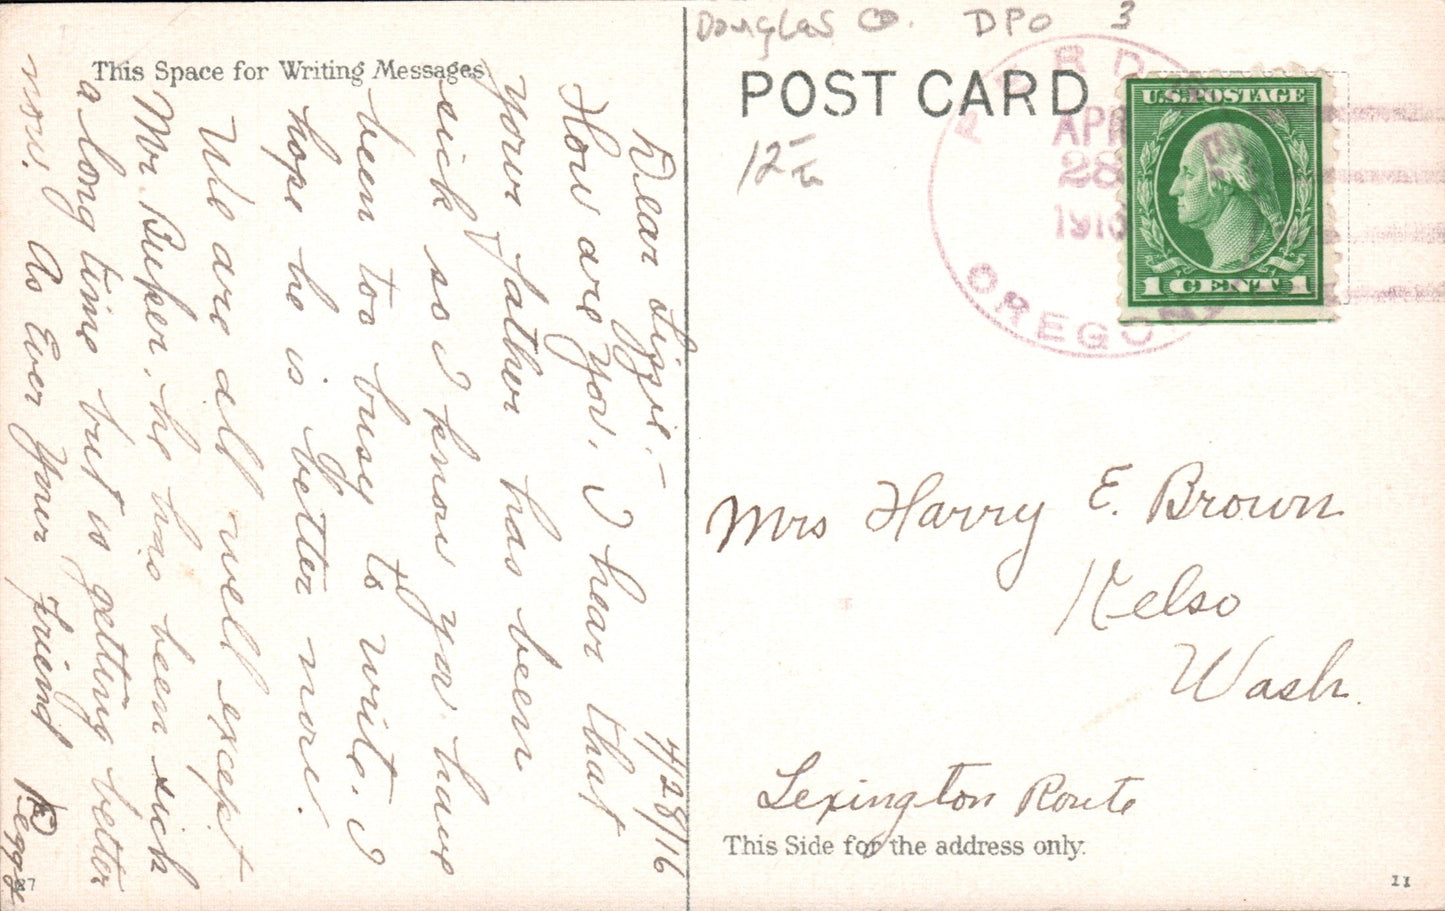 Douglas Co. DPO 3
This Space for Writing Messages
POST CARD
12
U.S. POSTAGE
1 CENT 1
APR
28
1916
OREGON
4/28/16
Dear Lizzie:-
How are you. I hear that
your father has been
sick so I know you have
been too busy to write. I
hope he is better now.
We are all well except
Mr. he has been sick
a long time but is getting better
now. As Ever Your Friend Peggie
Mrs Harry E. Brown
Kelso
Wash.
Lexington Route
This Side for the address only.
11